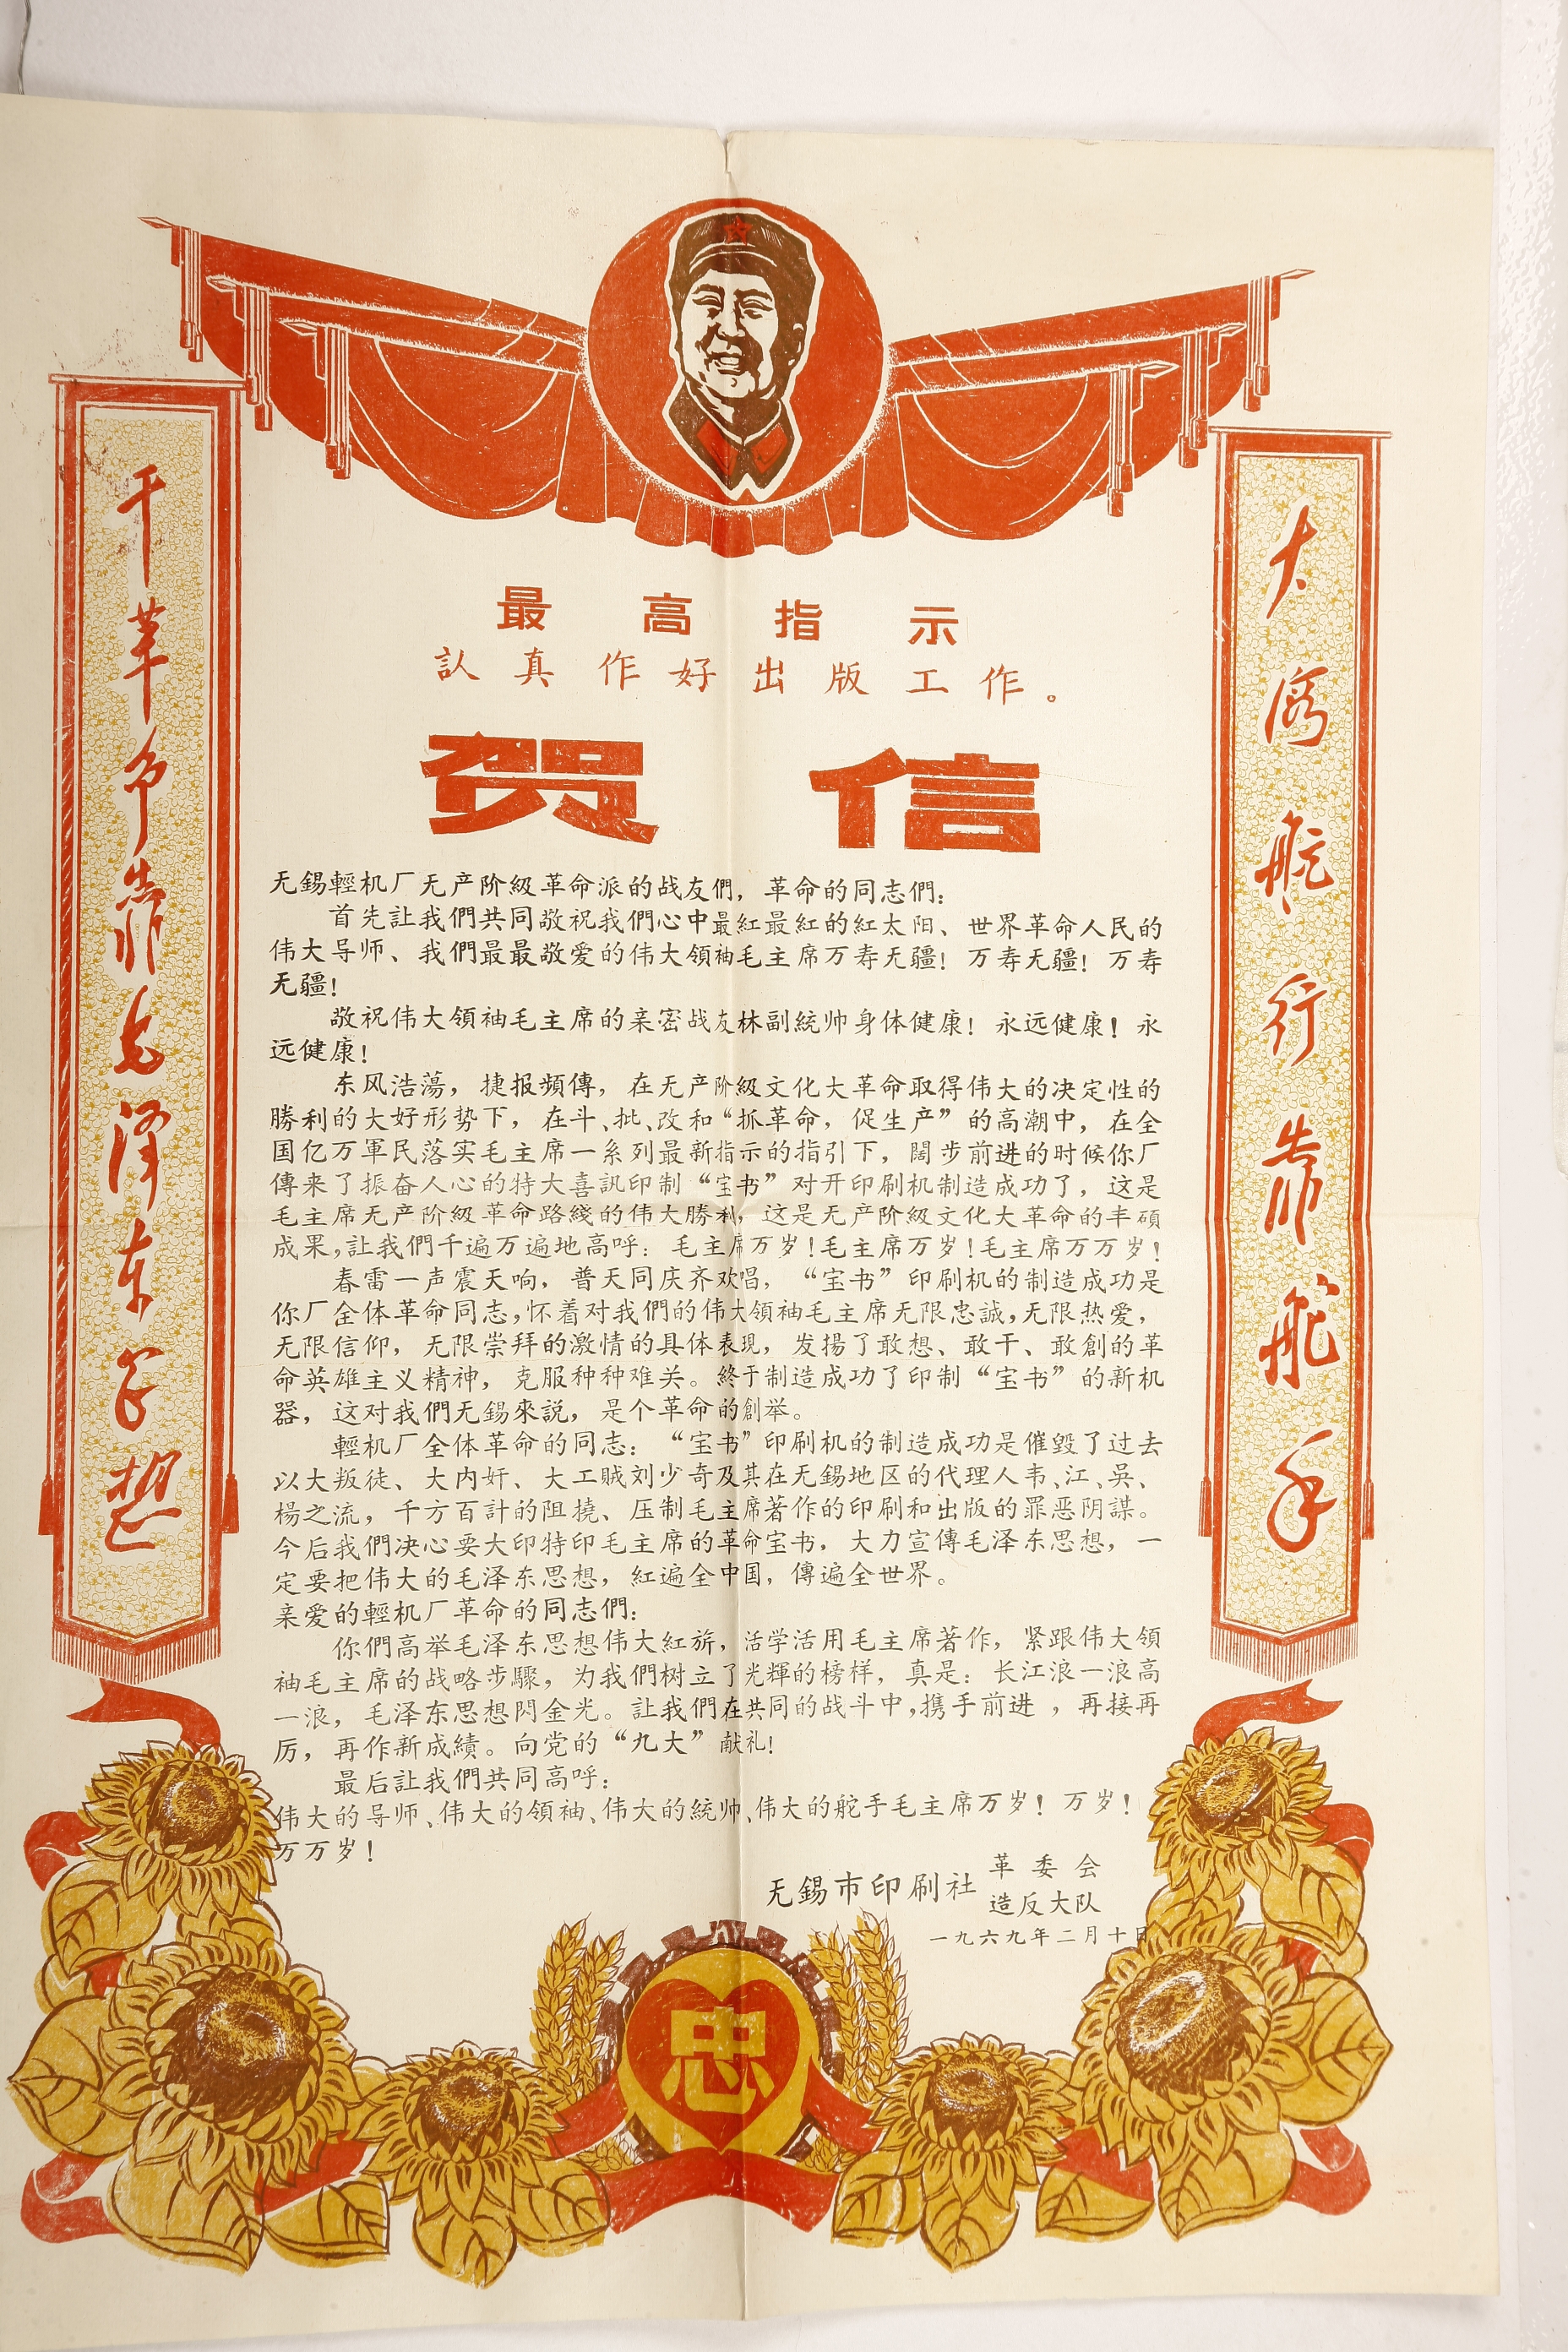 大海航行靠舵手
干革命靠毛泽东思想
最高指示
認真作好出版工作。
贺信
无錫輕机厂无产阶級革命派的战友們，革命的同志們：
首先註我們共同敬祝我們心中最紅最紅的紅太阳、世界革命人民的
伟大导师、我們最最敬爱的伟大領袖毛主席万寿无疆！万寿无疆！万寿
无疆！
敬祝伟大領袖毛主席的亲密战友林副統帅身体健康！永远健康！永
远健康！
东风浩蕩，捷报頻傳，在无产阶級文化大革命取得伟大的决定性的
勝利的大好形势下，在斗、批、改和“抓革命，促生产”的高潮中，在全
国亿万軍民落实毛主席一系列最新指示的指引下，闊步前进的时候你厂
傳来了振奋人心的特大喜訊印制“宝书”对开印刷机制造成功了，这是
毛主席无产阶級革命路綫的伟大勝利，这是无产阶級文化大革命的丰碩
成果，註我們千遍万遍地高呼：毛主席万岁！毛主席万岁！毛主席万万岁！
春雷一声震天响，普天同庆齐欢唱，“宝书”印刷机的制造成功是
你厂全体革命同志，怀着对我們的伟大領袖毛主席无限忠誠，无限热爱，
无限信仰，无限崇拜的激情的具体表現，发揚了敢想、敢干、敢創的革
命英雄主义精神，克服种种难关。終于制造成功了印制“宝书”的新机
器，这对我們无錫來説，是个革命的創举。
輕机厂全体革命的同志：“宝书”印刷机的制造成功是催毁了过去
以大叛徒、大内奸、大工贼刘少奇及其在无錫地区的代理人韦、江、吳、
楊之流，千方百計的阻撓、压制毛主席著作的印刷和出版的罪恶阴謀。
今后我們决心要大印特印毛主席的革命宝书，大力宣傳毛泽东思想，一
定要把伟大的毛泽东思想，紅遍全中国，傳遍全世界。
亲爱的輕机厂革命的同志們：
你們高举毛泽东思想伟大紅旂，活学活用毛主席著作，紧跟伟大領
袖毛主席的战略步驟，为我們树立了光輝的榜样，真是：长江浪一浪高
一浪，毛泽东思想閃金光。註我們在共同的战斗中，携手前进，再接再
厉，再作新成績。向党的“九大”献礼！
最后註我們共同高呼：
伟大的导师、伟大的領袖、伟大的統帅、伟大的舵手毛主席万岁！万岁！
万万岁！
无錫市印刷社
革委会
造反大队
一九六九年二月十日
忠